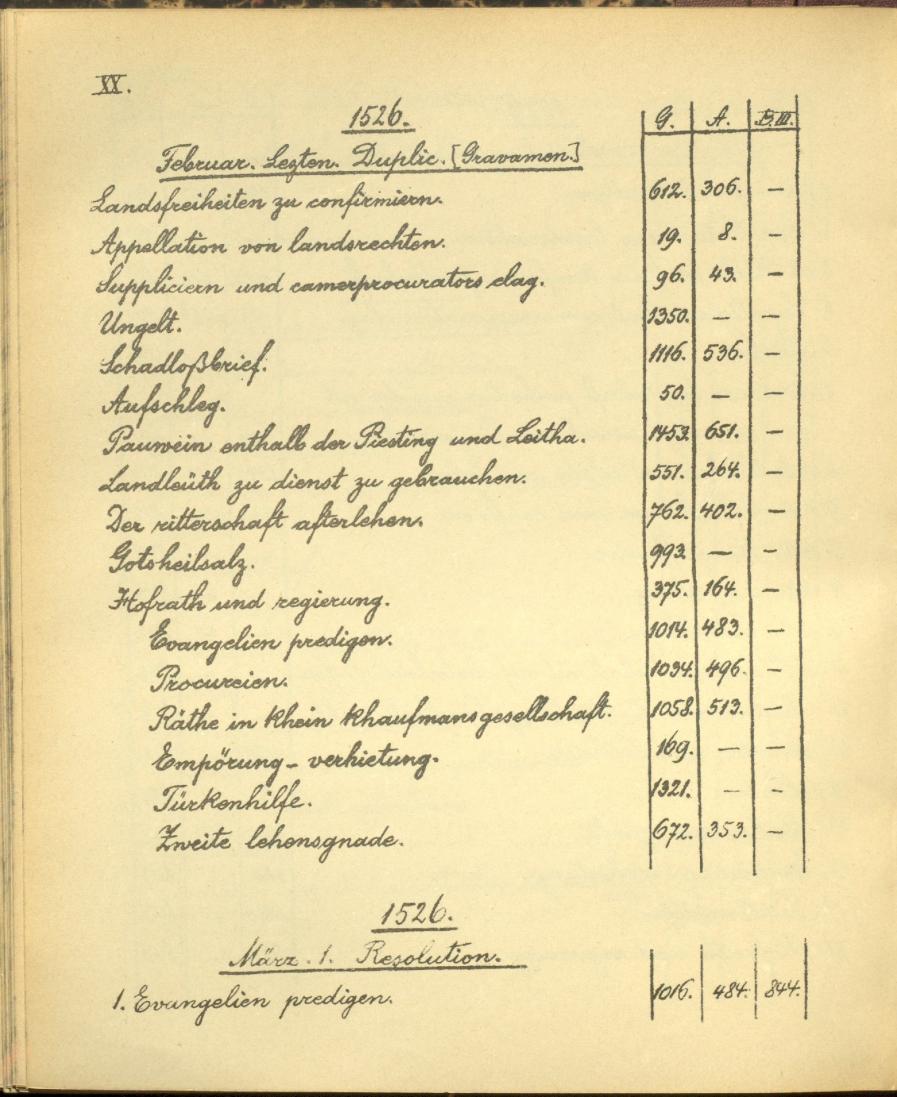 XX.
1526. G. A. B.III.
Februar. Lezten. Duplic. [Gravamen.]
Landsfreiheiten zu confirmiern. 612. 306. —
Appellation von landsrechten. 19. 8. —
Suppliciern und camerprocurators clag. 96. 43. —
Ungelt. 1350. — —
Schadloßbrief. 1116. 536. —
Aufschleg. 50. — —
Pauwein enthalb der Piesting und Leitha. 1453. 651. —
Landleüth zu dienst zu gebrauchen. 551. 264. —
Der ritterschaft afterlehen. 762. 402. —
Gotsheilsalz. 993. — —
Hofrath und regierung. 375. 164. —
Evangelien predigen. 1014. 483. —
Procureien. 1034. 496. —
Räthe in khein khaufmansgesellschaft. 1058. 513. —
Empörung- verhietung. 169. — —
Türkenhilfe. 1321. — —
Zweite lehensgnade. 672. 353. —
1526.
März. 1. Resolution.
1. Evangelien predigen. 1016. 484. 844.